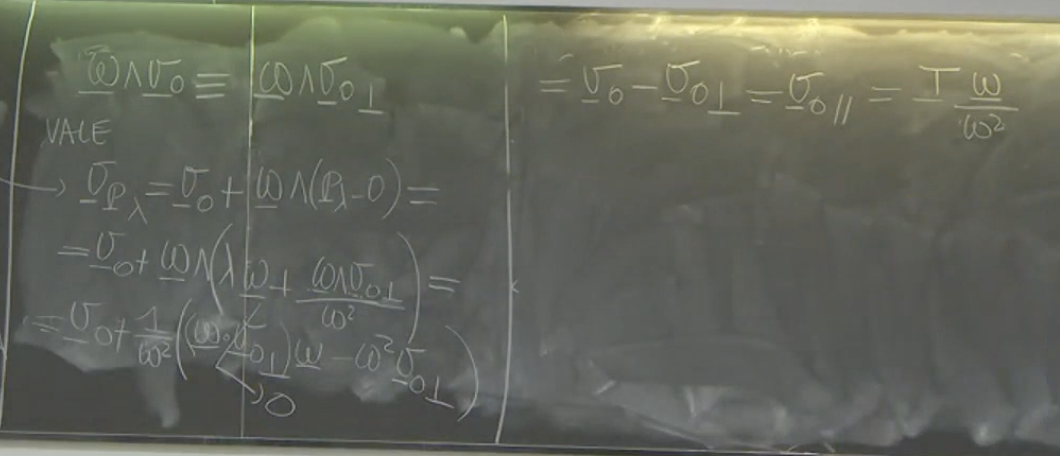 ω∧v₀ ≡ ω∧v₀⊥
VALE
→ v_Pλ = v₀ + ω∧(Pλ-O) =
= v₀ + ω∧(λω + (ω∧v₀⊥)/ω²) =
= v₀ + 1/ω² ((ω·v₀⊥)ω - ω²v₀⊥)
→ 0
= v₀ - v₀⊥ = v₀// = I ω/ω²